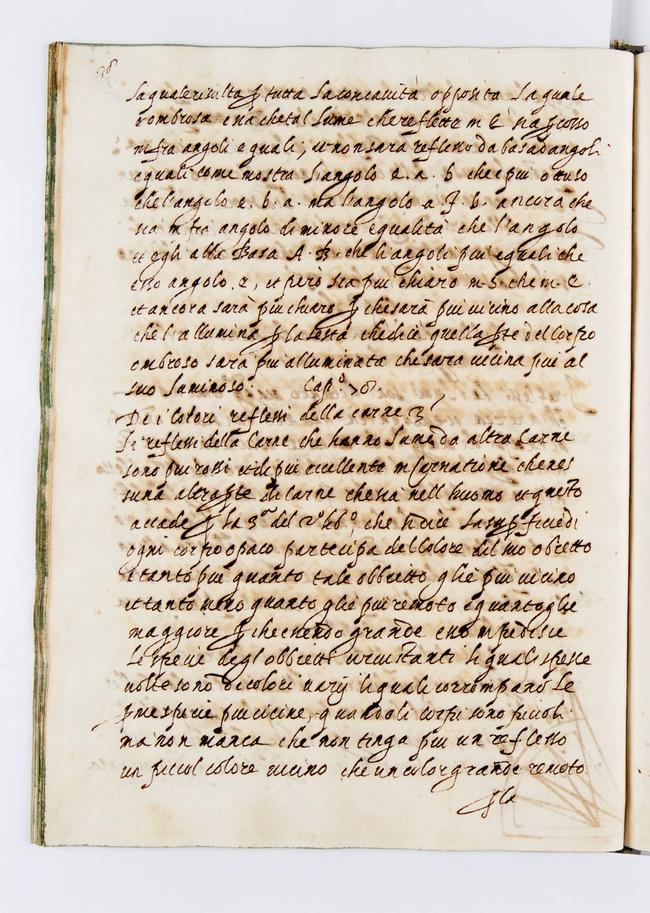 la quale risulta p tutta la concavità opposita la quale
è ombrosa è nò che tal lume che reflette in E sia percosso
infra angoli equali; et non sarà reflesso da basa d'angoli
equali come mostra l'angolo e. a. b che è piu ottuso
che l'angolo e. b. a. ma l'angolo a f. b. ancora che
sia infra angolo di minore equalità che l'angolo
et egli alla Basa A. B. che l'angoli piu equali che
esso angolo. e, et però sia piu chiaro in S. che in E.
et ancora sarà piu chiaro p che sarà piu vicino alla cosa
che l'allumina p la sesta che dicie quella pte del corpo
ombroso sarà piu alluminata che sara vicina piu al
suo luminoso. Cap.º 78.
De i Colori reflessi della carne
Li reflessi della Carne che hanno lume da altra Carne
sono piu rossi et di piu eccellente incarnatione che nes
suna altra pte di carne che sia nell huomo et questo
accade p la 3.ª del 2.º lib.º che dice la supficie di
ogni corpo opaco partecipa del Colore del suo obbietto
e tanto piu quanto tale obbietto gliè piu vicino
et tanto meno quanto gliè piu remoto e quanto gliè
maggiore p che essendo grande esso inpedisce
le spetie degl'obbietti circustanti li quali spesse
volte sono di colori varij li quali corrompano le
prime spetie piu vicine, quando li corpi sono piccoli
ma non manca che non tinga piu un reflesso
un piccol colore vicino che un color grande remoto
p la